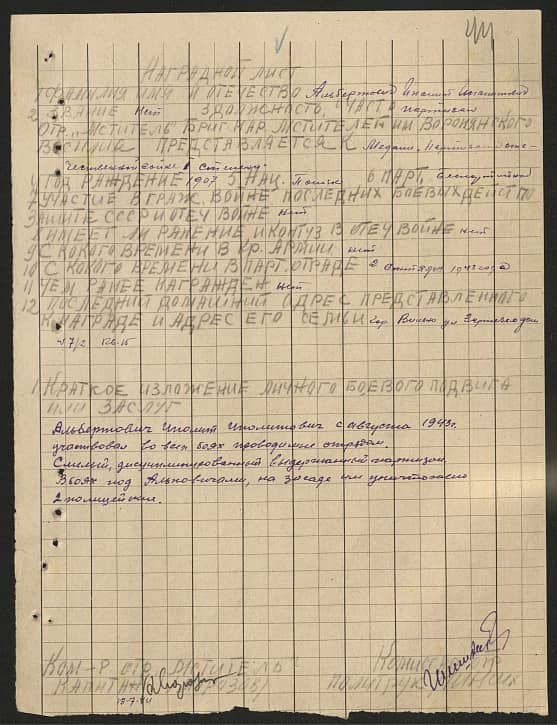 44
НАГРАДНОЙ ЛИСТ
1 ФАМИЛИЯ ИМЯ И ОТЕЧЕСТВО Альбертович Иполит Иполитович
2 ЗВАНИЕ нет 3 ДОЛЖНОСТЬ, ЧАСТЬ партизан
ОТР. „МСТИТЕЛЬ" БРИГ. НАР. МСТИТЕЛЕЙ ИМ ВОРОНЯНСКОГО
ПРЕДСТАВЛЯЕТСЯ К Медали „Партизан Оте-
чественной войны" II степени
4 ГОД РАЖДЕНИЕ 1907 5 НАЦ. Поляк 6 ПАРТ. беспартийный
7 УЧАСТИЕ В ГРАЖ. ВОЙНЕ ПОСЛЕДНИХ БОЕВЫХ ДЕЙСТ ПО
ЗАЩИТЕ СССР И ОТЕЧ ВОЙНЕ нет
8 ИМЕЕТ ЛИ РАНЕНИЕ И КОНТУЗ В ОТЕЧ ВОЙНЕ нет
9 С КОКОГО ВРЕМЕНИ В КР. АРМИИ нет
10 С КОКОГО ВРЕМЕНИ В ПАРТ. ОТРАДЕ 2 1943 года
11 ЧЕМ РАНЕЕ НАГРАЖДЕН нет
12 ПОСЛЕДНИЙ ДОМАШНИЙ АДРЕС ПРЕДСТАВЛЕННОГО
К НАГРАДЕ И АДРЕС ЕГО СЕМЬИ гор. ул
7/2 кв. 15
1 КРАТКОЕ ИЗЛОЖЕНИЕ ЛИЧНОГО БОЕВОГО ПОДВИГА
ИЛИ ЗАСЛУГ
Альбертович Иполит Иполитович с августа 1943 г.
участвовал во всех боях проводимые отрядом.
Смелый, дисциплинированный выдержанный партизан.
В боях под Ильковичами, на засаде им уничтожено
2 полицейских.
КОМ-Р ОТР „МСТИТЕЛЬ" КОМИССАР ОТР
КАПИТАН ПОЛИТРУК
15-7-44